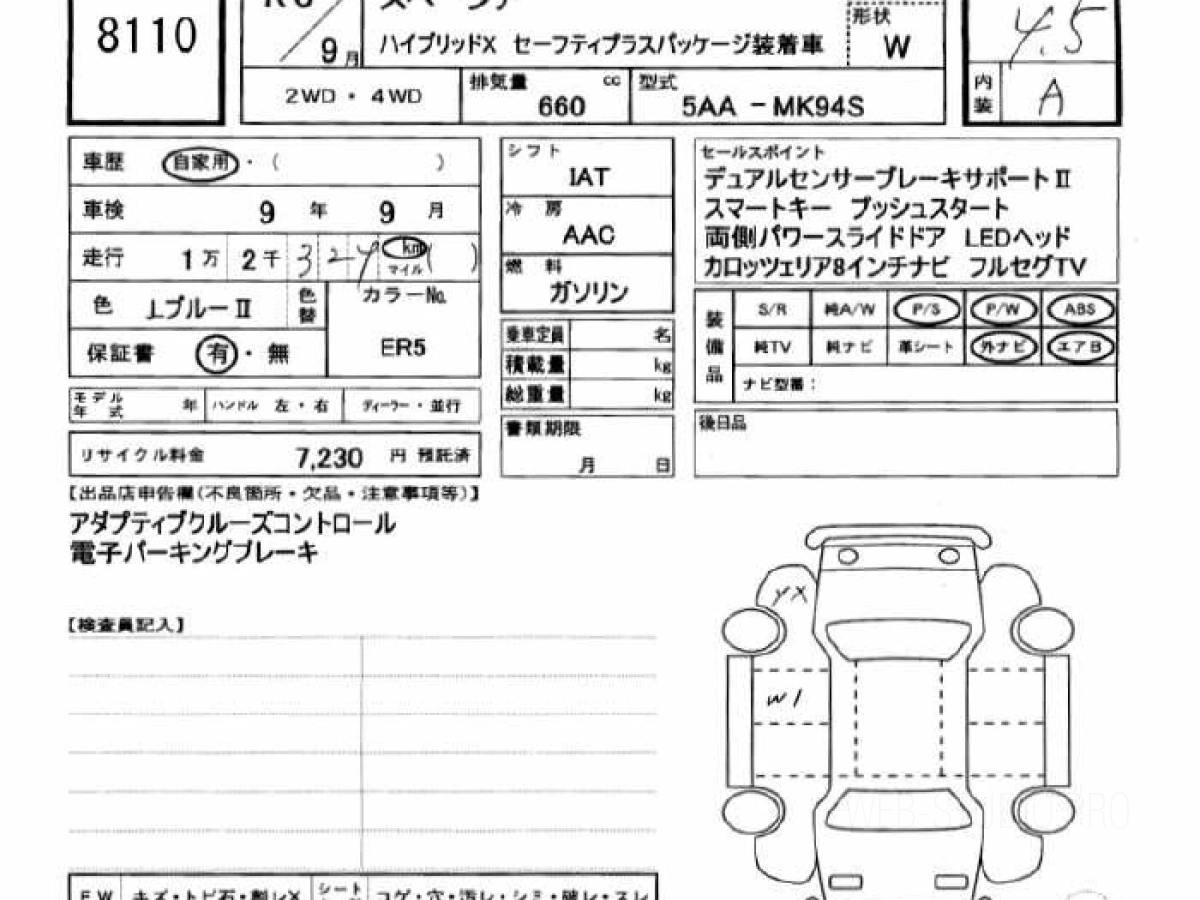 8110
9月
ハイブリッドX セーフティプラスパッケージ装着車
形状
W
4.5
2WD・4WD
排気量 cc
660
型式
5AA -MK94S
内装 A
車歴 自家用・( )
車検 9 年 9 月
走行 1万 2千 324 km マイル ( )
色 Lブルー II 色替
カラーNo.
ER5
保証書 有・無
モデル年式 年 ハンドル 左・右 ディーラー・並行
リサイクル料金 7,230 円 預託済
シフト
IAT
冷房
AAC
燃料
ガソリン
乗車定員 名
積載量 kg
総重量 kg
書類期限
月 日
セールスポイント
デュアルセンサーブレーキサポートII
スマートキー プッシュスタート
両側パワースライドドア LEDヘッド
カロッツェリア8インチナビ フルセグTV
装備品
S/R 純A/W P/S P/W ABS
純TV 純ナビ 革シート 外ナビ エアB
ナビ型番:
後日品
【出品店申告欄(不良箇所・欠品・注意事項等)】
アダプティブクルーズコントロール
電子パーキングブレーキ
【検査員記入】
YX
W1